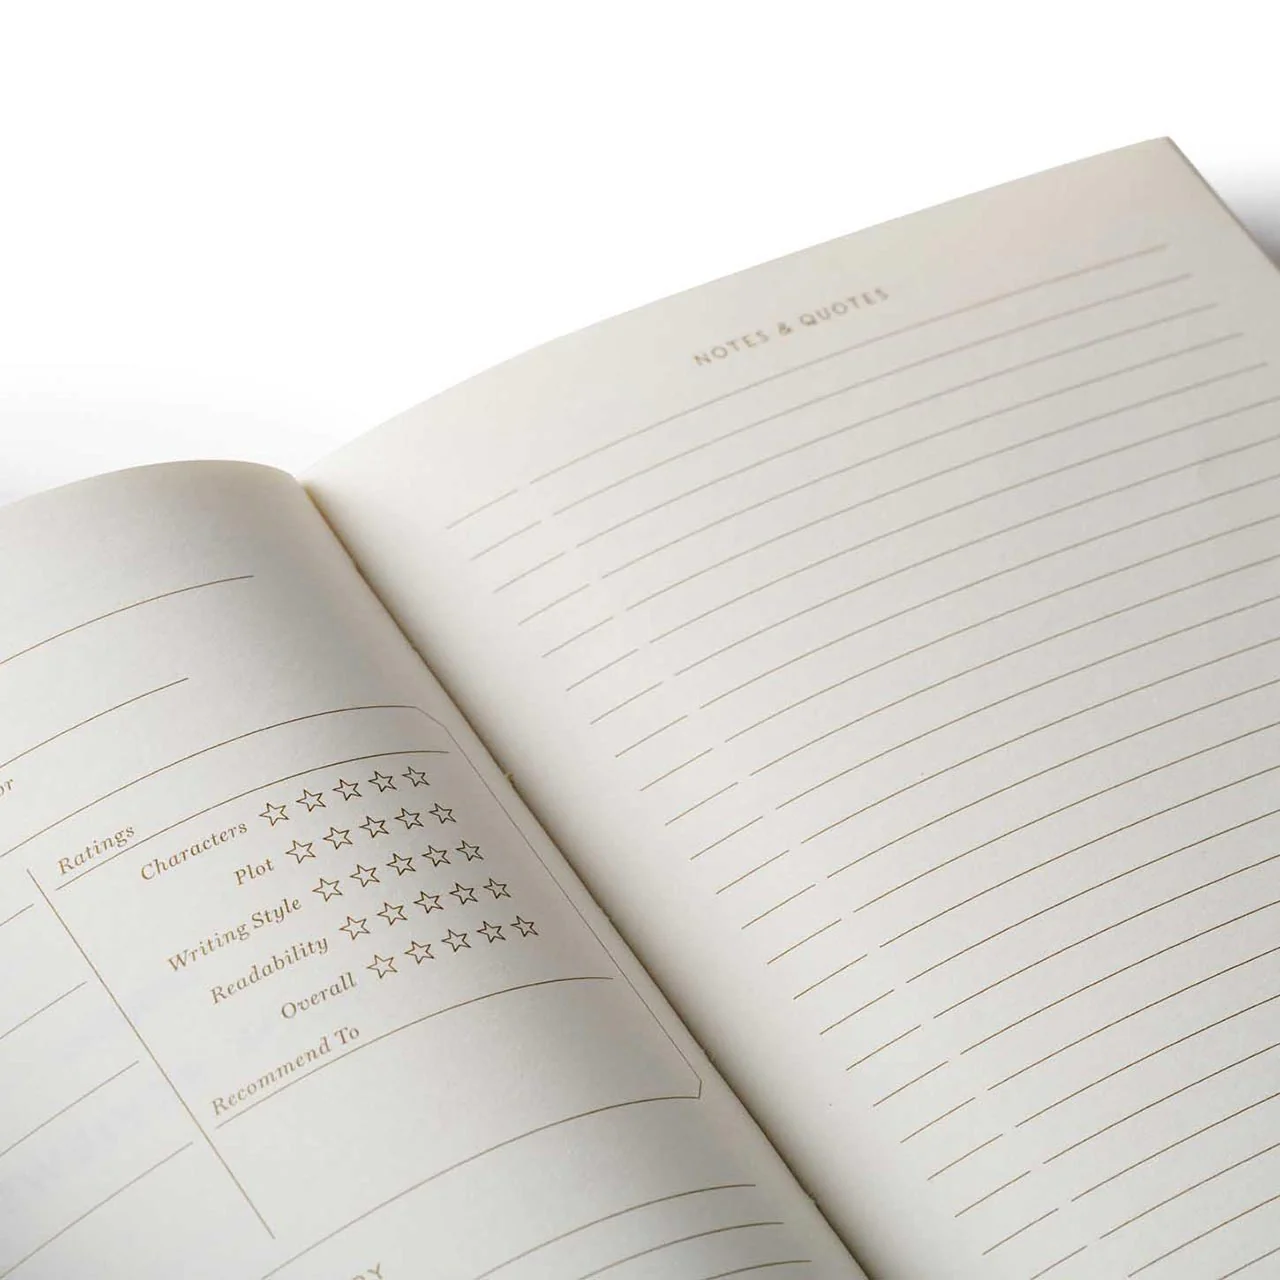 Ratings
Characters
Plot
Writing Style
Readability
Overall
Recommend To
NOTES & QUOTES